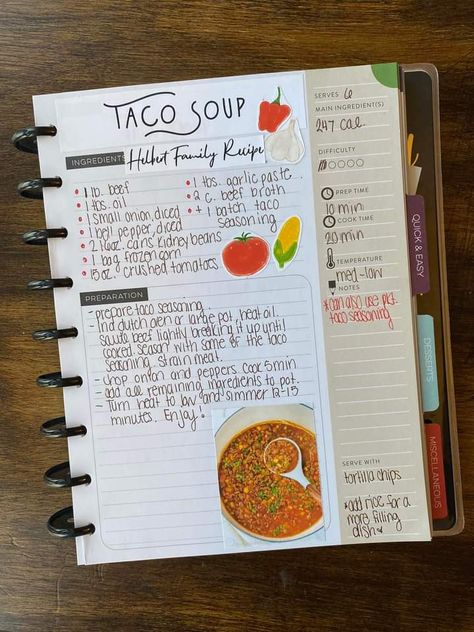 TACO SOUP
INGREDIENTS
Helbert Family Recipe
1 lb. beef
1 tbs. oil
1 small onion, diced
1 bell pepper, diced
2 16oz. cans kidney beans
1 bag frozen corn
15oz crushed tomatoes
1 tbs. garlic paste
2 c. beef broth
1 batch taco
seasoning
PREPARATION
- prepare taco seasoning
- Ind dutch oven or large pot, heat oil.
sauté beef lightly breaking it up until
cooked. season with some of the taco
seasoning. strain meat.
- chop onion and peppers. cook 5 min
- add all remaining ingredients to pot.
- Turn heat to low and simmer 12-15
minutes. Enjoy!
SERVES 6
MAIN INGREDIENT(S)
247 cal.
DIFFICULTY
PREP TIME
10 min
COOK TIME
20 min
TEMPERATURE
med-low
NOTES
*can also use pkt.
taco seasoning
SERVE WITH
tortilla chips
*add rice for a
more filling
dish
QUICK & EASY
DESSERTS
MISCELLANEOUS